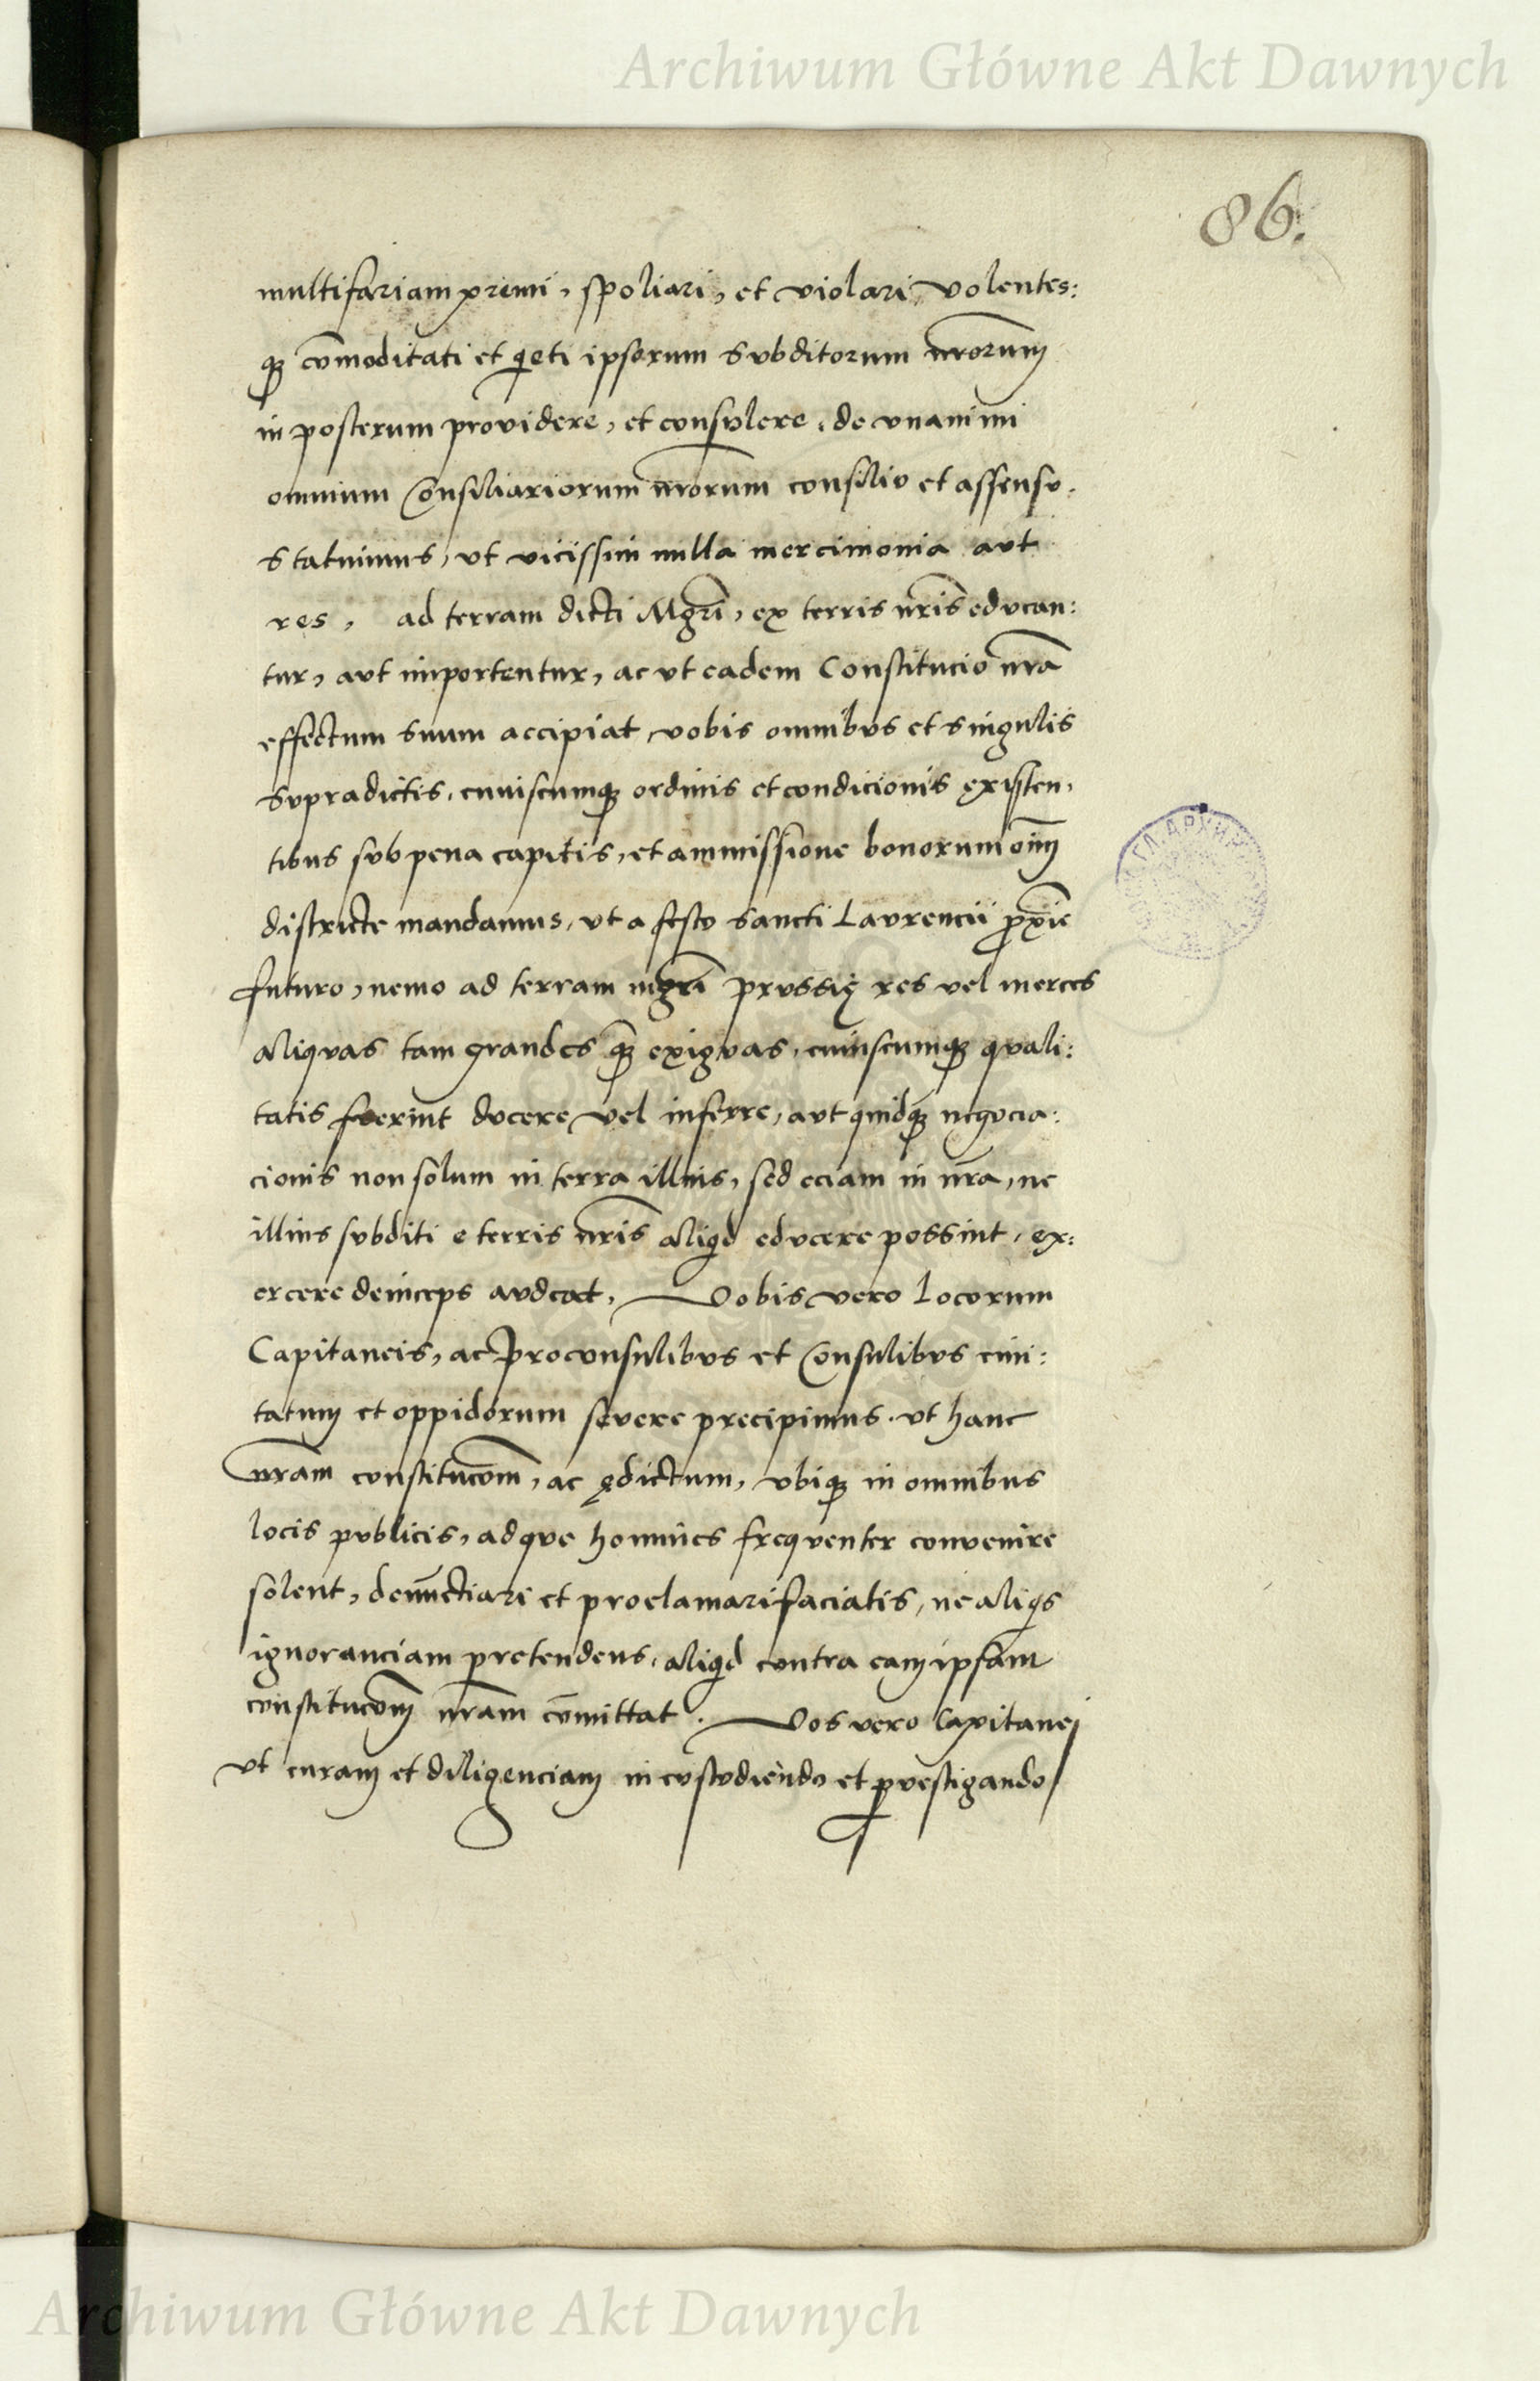 Archiwum Główne Akt Dawnych
86.
multifariam premi, spoliari, et violari, volentes:
qꝫ com̄oditati et qͥeti ipsorum subditorum nr̄orum
in posterum providere, et consulere, de unanimi
omnium Consiliariorum nr̄orum consilio et assensu.
Statuimus, ut vicissim nulla mercimonia aut
res, ad terram dicti Mgr̄i, ex terris nr̄is educan:
tur, aut importentur, ac ut eadem Constitucio nr̄a
effectum suum accipiat, vobis omnibus et singulis
supradictis, cuiuscumqꝫ ordinis et condicionis existen,
tibus sub pena capitis, et ammissione bonorum om̄
districte mandamus, ut a festo Sancti Laurencii prox̄ie
futuro, nemo ad terram mgr̄i prussię res vel merces
aliquas tam grandes qꝫ exiguas, cuiuscumqꝫ quali:
tatis fuerint ducere vel inferre, aut quidqꝫ negocia:
cionis non solum in terra illius, sed eciam in nr̄a, ne
illius subditi e terris nr̄is aliqͥd educere possint, ex:
ercere deinceps audeat, Vobis vero locorum
Capitaneis, ac Proconsulibus et Consulibus civi:
tatum et oppidorum severe precipimus. ut hanc
nr̄am constitucōm, ac ędictum, ubiqꝫ in omnibus
locis publicis, ad que homines frequenter convenire
solent, denūctiari et proclamari faciatis, ne aliqͥs
ignoranciam pretendens, aliqͥd contra eam ipsam
constitucōm nr̄am com̄ittat. Vos vero Capitanei
ut curam et diligenciam in custodiendo et ꝑvestigando
Archiwum Główne Akt Dawnych